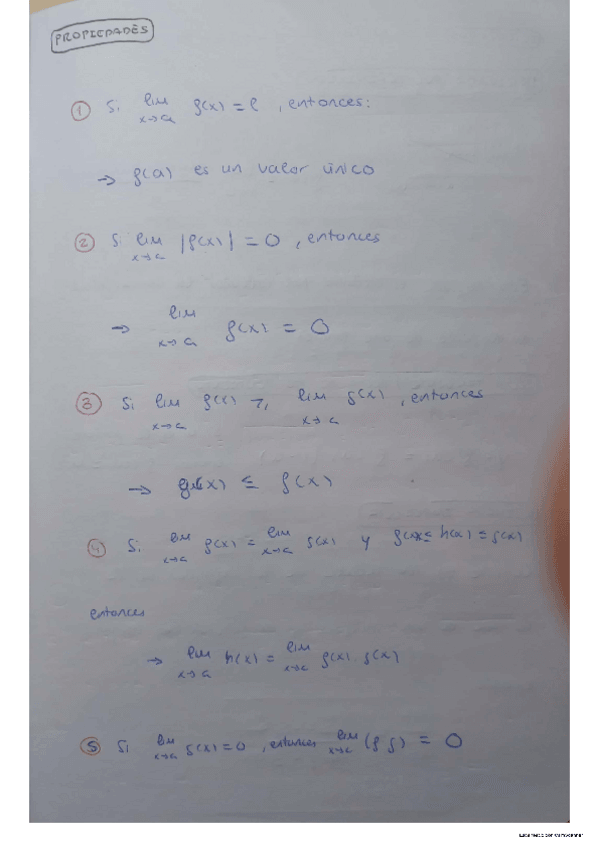 PROPIEDADES
① Si lim x→a f(x) = l, entonces:
→ f(a) es un valor único
② Si lim x→a |f(x)| = 0, entonces
→ lim x→a f(x) = 0
③ Si lim x→a f(x) ≥ lim x→a g(x), entonces
→ g(x) ≤ f(x)
④ Si lim x→a f(x) = lim x→a g(x) y f(x) ≤ h(x) ≤ g(x)
entonces
→ lim x→a h(x) = lim x→a f(x) . g(x)
⑤ Si lim x→a g(x) = 0, entonces lim x→a (f g) = 0